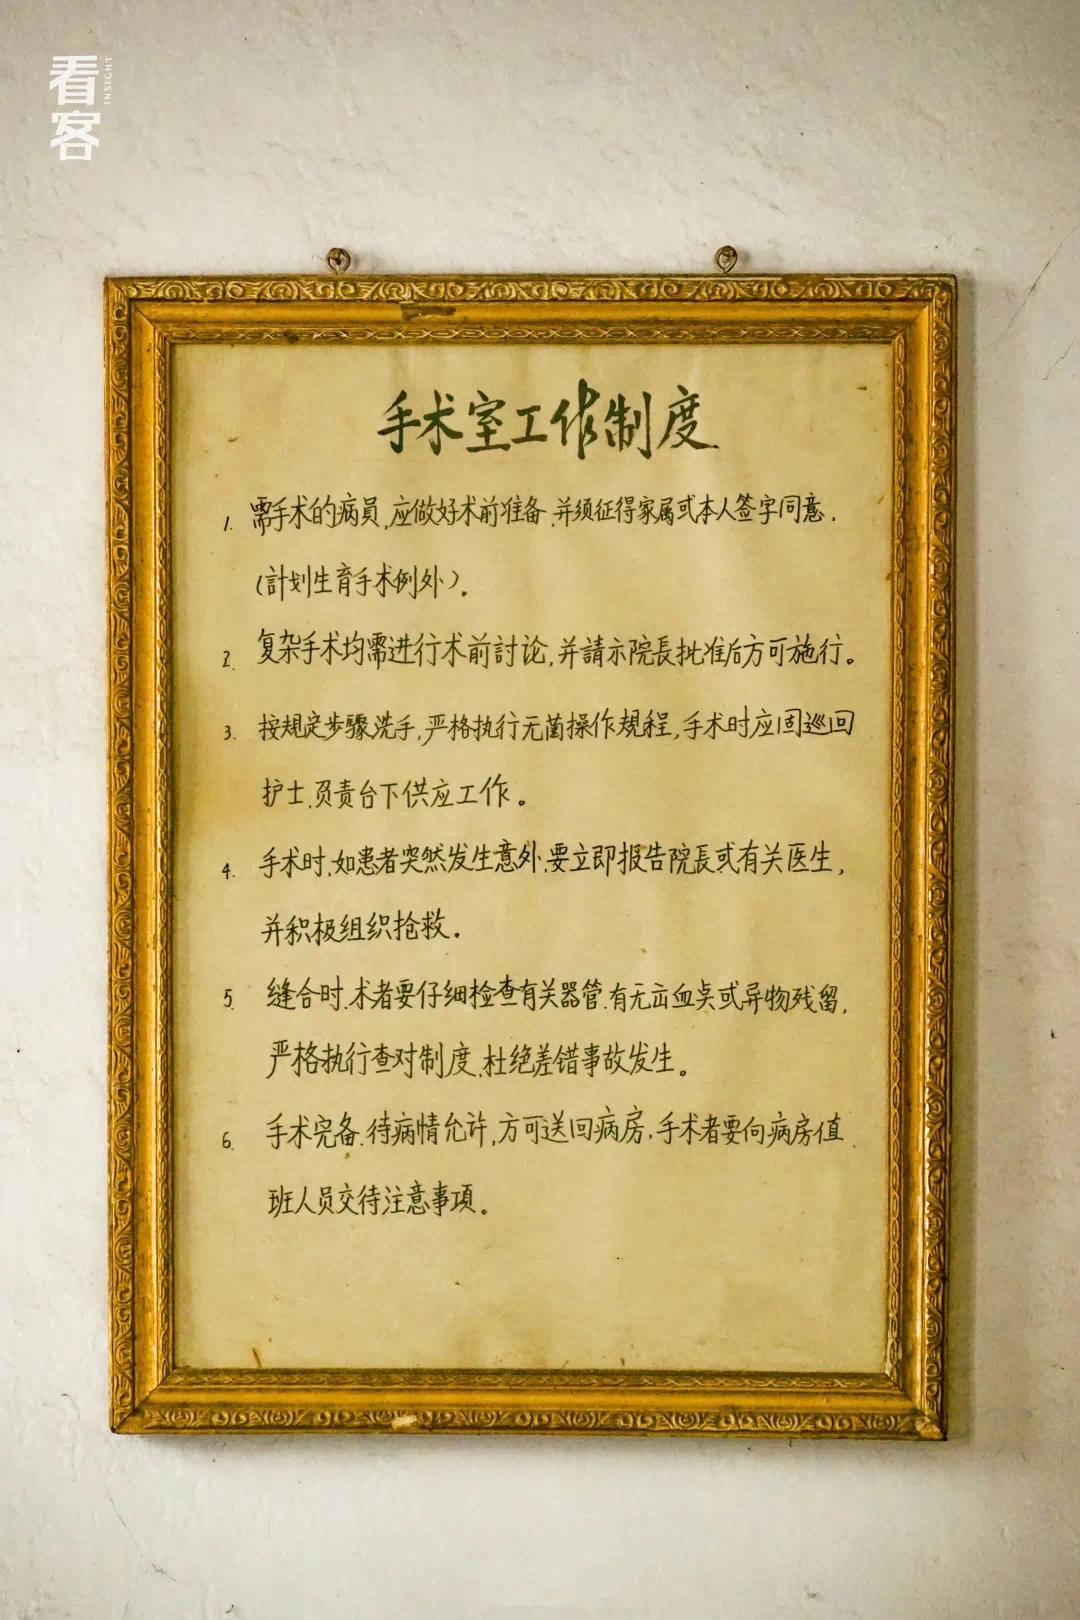 看客
INSIGHT
手术室工作制度
1. 需手术的病员,应做好术前准备.并须征得家属或本人签字同意.
(計划生育手术例外).
2. 复杂手术均需进行术前討论,并請示院長批准后方可施行。
3. 按规定步驟洗手,严格执行无菌操作规程,手术时应固巡回
护士.负责台下供应工作。
4. 手术时.如患者突然发生意外.要立即报告院長或有关医生,
并积极组织抢救.
5. 缝合时.术者要仔细检查有关器管.有无出血点或异物残留,
严格执行查对制度.杜绝差错事故发生。
6. 手术完备.待病情允许,方可送回病房.手术者要向病房值
班人员交待注意事項。